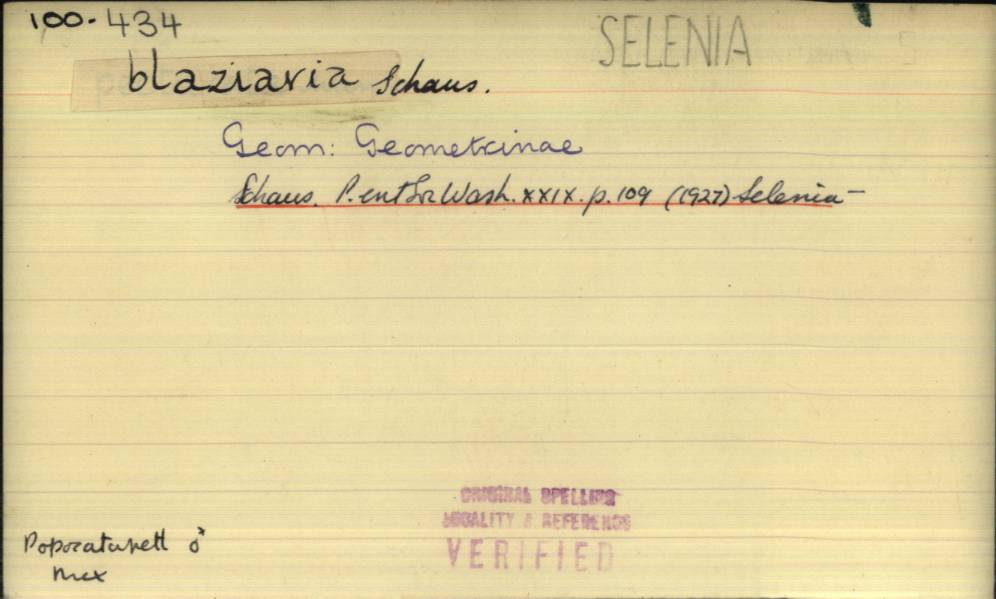 100-434
SELENIA
blaziaria Schaus.
Geom: Geometrinae
Schaus. P. ent Soc Wash. XXIX. p. 109 (1927) Selenia —
ORIGINAL SPELLING
LOCALITY & REFERENCE
VERIFIED
Popocatapetl ♂
Mex